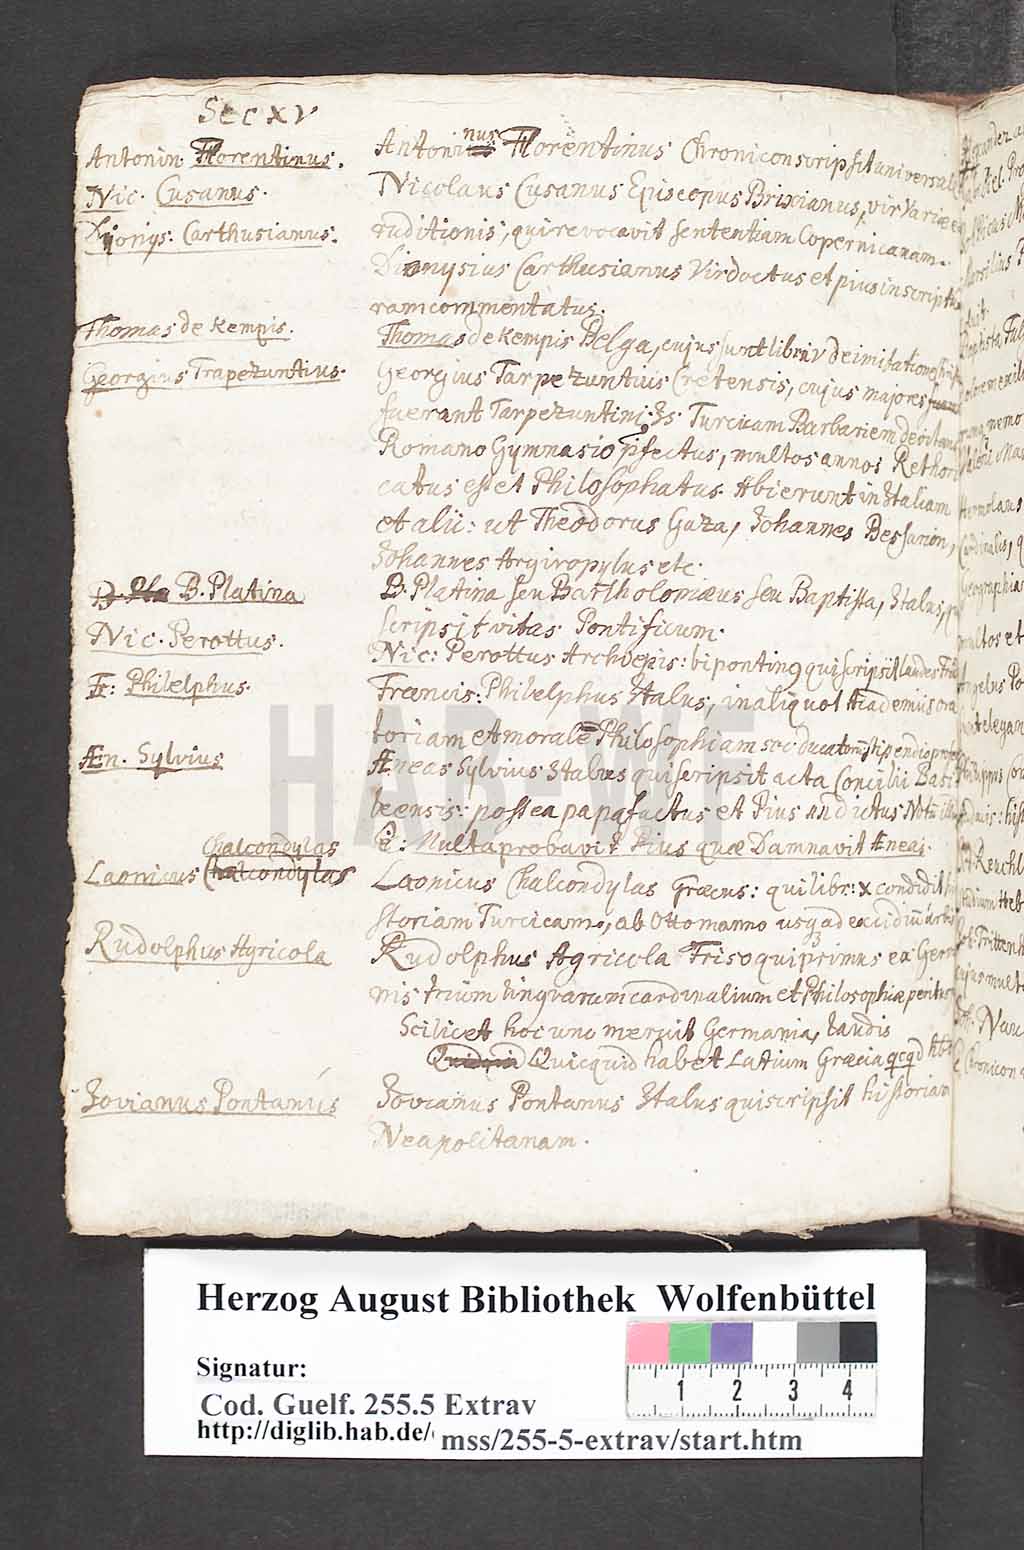 Sec XV
Antonin Florentinus.
Antoninus Florentinus Chronicon scripsit universale
Nic. Cusanus.
Nicolaus Cusanus Episcopus Brixianus, vir variæ e-
Dionys: Carthusianus.
ruditionis, qui revocavit sententiam Copernicanam.
Dionysius Carthusianus Vir doctus et pius in scriptu
ram commentatus.
Thomas de Kempis.
Thomas de Kempis Belga, cujus sunt libri IV de imitatione
Georgius Trapezuntius.
Georgius Tarpezuntius Cretensis, cujus majores
fuerant Tarpezuntini. Is Turcicam Barbariem
Romano Gymnasio pfectus, multos annos Rethori
catus est et Philosophatus. Abierunt in Italiam
et alii: ut Theodorus Gaza, Johannes Bessarion,
Johannes Argiropylus etc.
B. Platina
B. Platina seu Bartholomæus seu Baptista, Italus,
scripsit vitas Pontificum.
Nic. Perottus.
Nic: Perottus Archiepis: qui scripsit laudes
Fr: Philelphus.
Francis: Philelphus Italus, in aliquot Academiis ora
toriam et morale Philosophiam stipendio
Æn. Sylvius
Æneas Sylvius Italus qui scripsit acta Concilii Basi
leensis: postea papa factus et Pius dictus
e: Multa probavit Pius quæ Damnavit Æneas.
Chalcondylas
Laonicus Chalcondylas
Laonicus Chalcondylas Græcus: qui libr: X condidit hi
storiam Turcicam, ab Ottomanno usq ad
Rudolphus Agricola
Rudolphus Agricola Friso qui primus ex Germa
nis trium linguarum cardinalium et Philosophiæ peritus
Scilicet hoc uno meruit Germania, laudis
Quicquid Quicquid habet Latium Græcia qcqd
Jovianus Pontanus
Jovianus Pontanus Italus qui scripsit historiam
Neapolitanam.
HAB WF
Herzog August Bibliothek Wolfenbüttel
Signatur:
Cod. Guelf. 255.5 Extrav
http://diglib.hab.de/ mss/255-5-extrav/start.htm
1 2 3 4